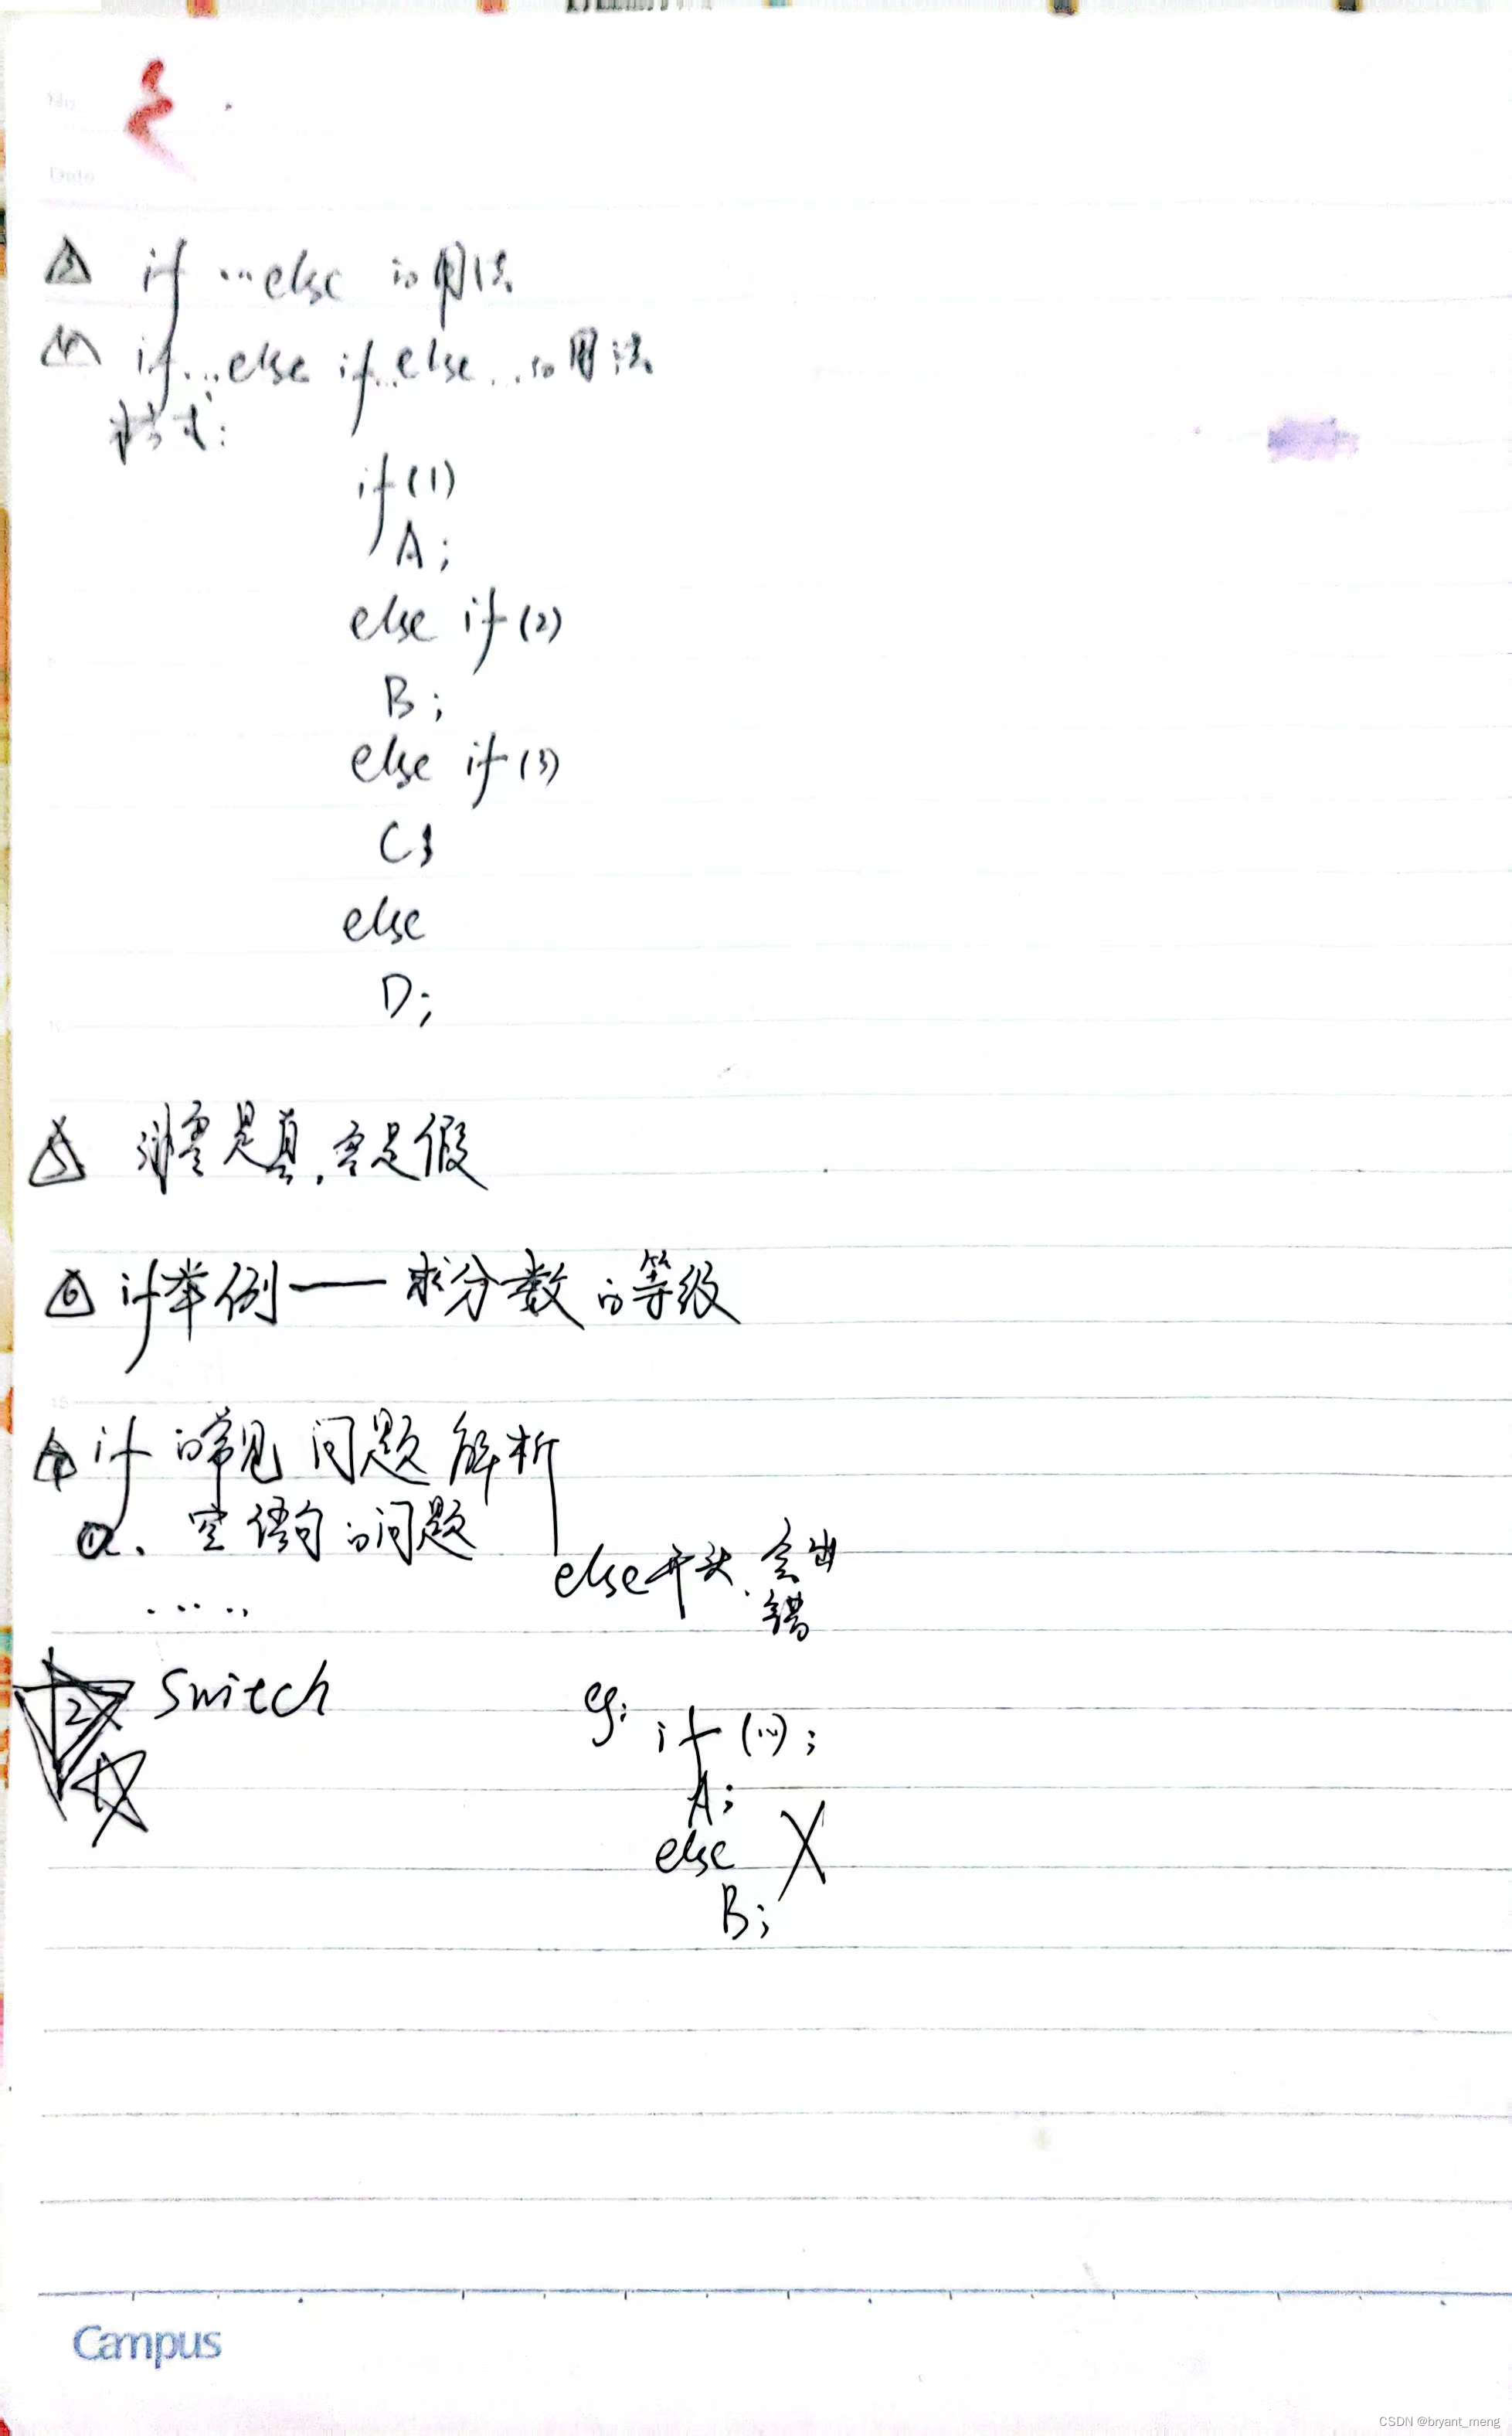 No
Date
3 if …else 的用法
4 if…else if…else…的用法
格式:
if(1)
A;
else if(2)
B;
else if(3)
C;
else
D;
5 非零是真,零是假
6 if举例——求分数的等级
7 if 的常见问题解析
①、空语句的问题
……
else开头,会出
错
2 Switch
eg: if (…);
A;
else
B;
Campus
CSDN @bryant_meng